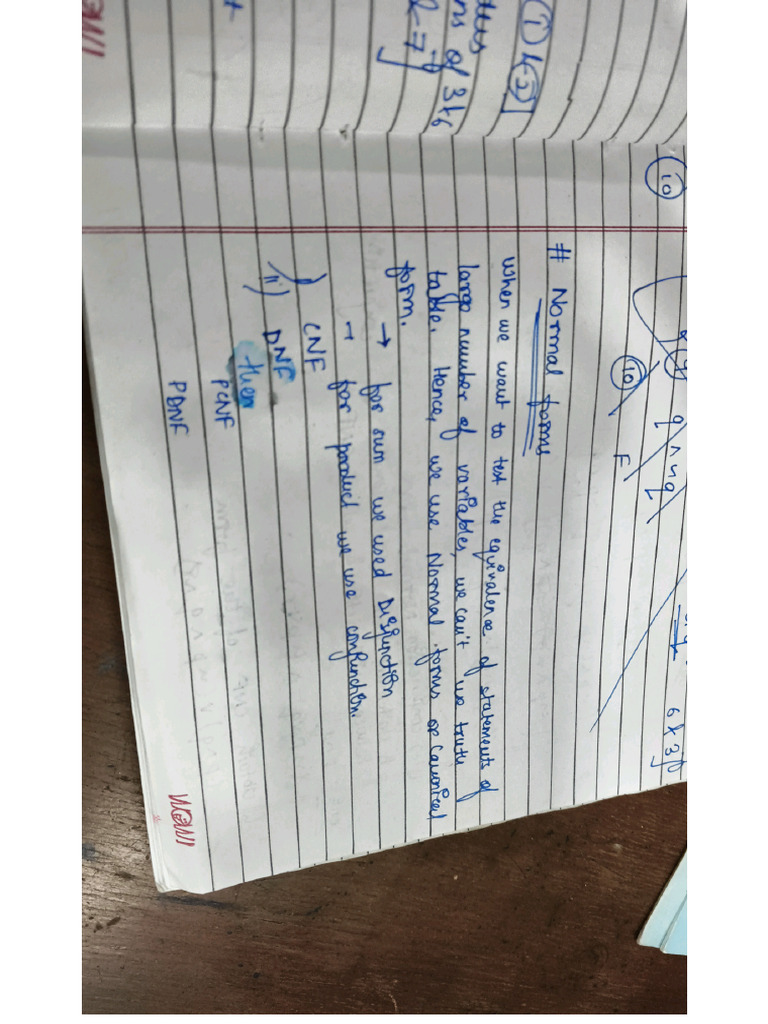 ① & ②
of 3 & 6
⑩
⑩
F
6 & 3
# Normal forms
when we want to test the equivalence of statements of
large number of variables, we can't use truth
table. Hence, we use Normal forms or Canonical
form.
→ for sum we used Disjunction
→ for product we use conjunction.
i) CNF
ii) DNF
then
PCNF
PDNF